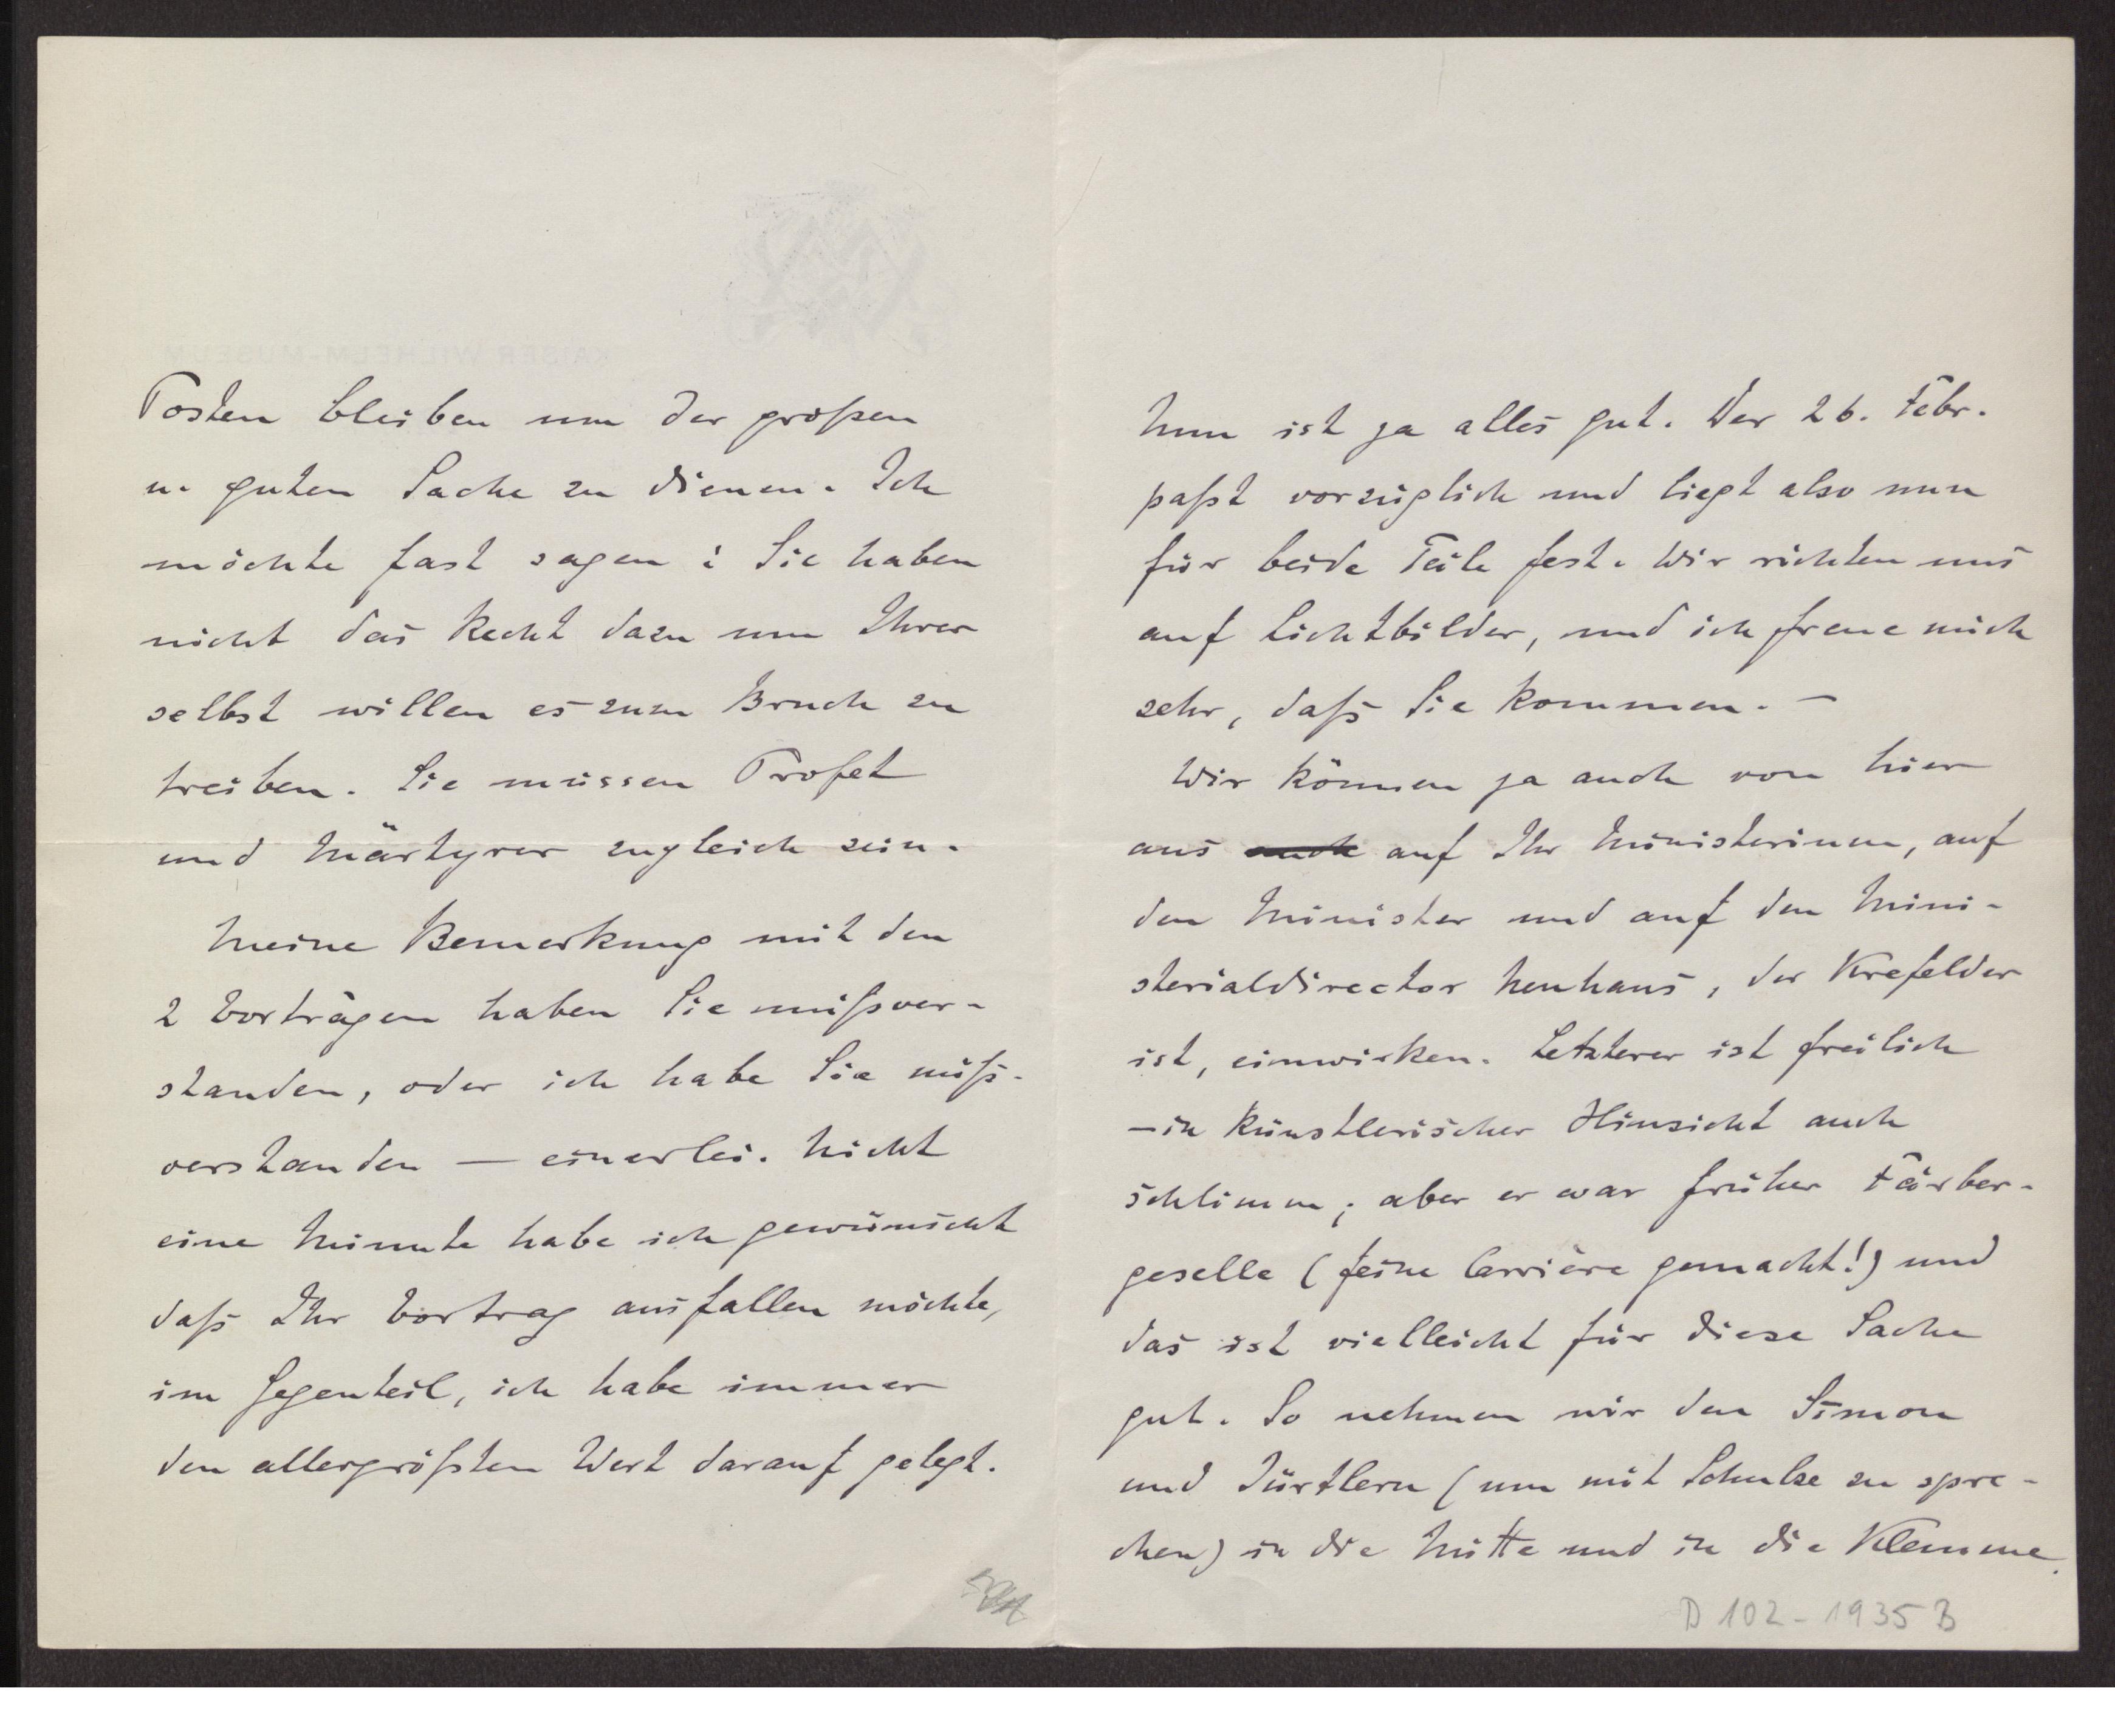 Posten bleiben um der großen
u. guten Sache zu dienen. Ich
möchte fast sagen: Sie haben
nicht das Recht dazu um Ihrer
selbst willen es zum Bruch zu
treiben. Sie müssen Profet
und Märtyrer zugleich sein.
Meine Bemerkung mit den
2 Vorträgen haben Sie mißver-
standen, oder ich habe Sie miß-
verstanden — einerlei. Nicht
eine Minute habe ich gewünscht
daß Ihr Vortrag ausfallen möchte,
im Gegenteil, ich habe immer
den allergrößten Wert darauf gelegt.
Nun ist ja alles gut. Der 26. Febr.
paßt vorzüglich und liegt also nun
für beide Teile fest. Wir richten uns
auf Lichtbilder, und ich freue mich
sehr, daß Sie kommen. —
Wir können ja auch von hier
aus auch auf Ihr Ministerium, auf
den Minister und auf den Mini-
sterialdirector Neuhaus, der Krefelder
ist, einwirken. Letzterer ist freilich
— in künstlerischer Hinsicht auch
schlimm; aber er war früher Färber-
geselle (feine Carrière gemacht!) und
das ist vielleicht für diese Sache
gut. So nehmen wir den Simon
und (um mit Schulze zu spre-
chen) in die Mitte und in die Klemme.
D 102-1935 B
KAISER WILHELM-MUSEUM